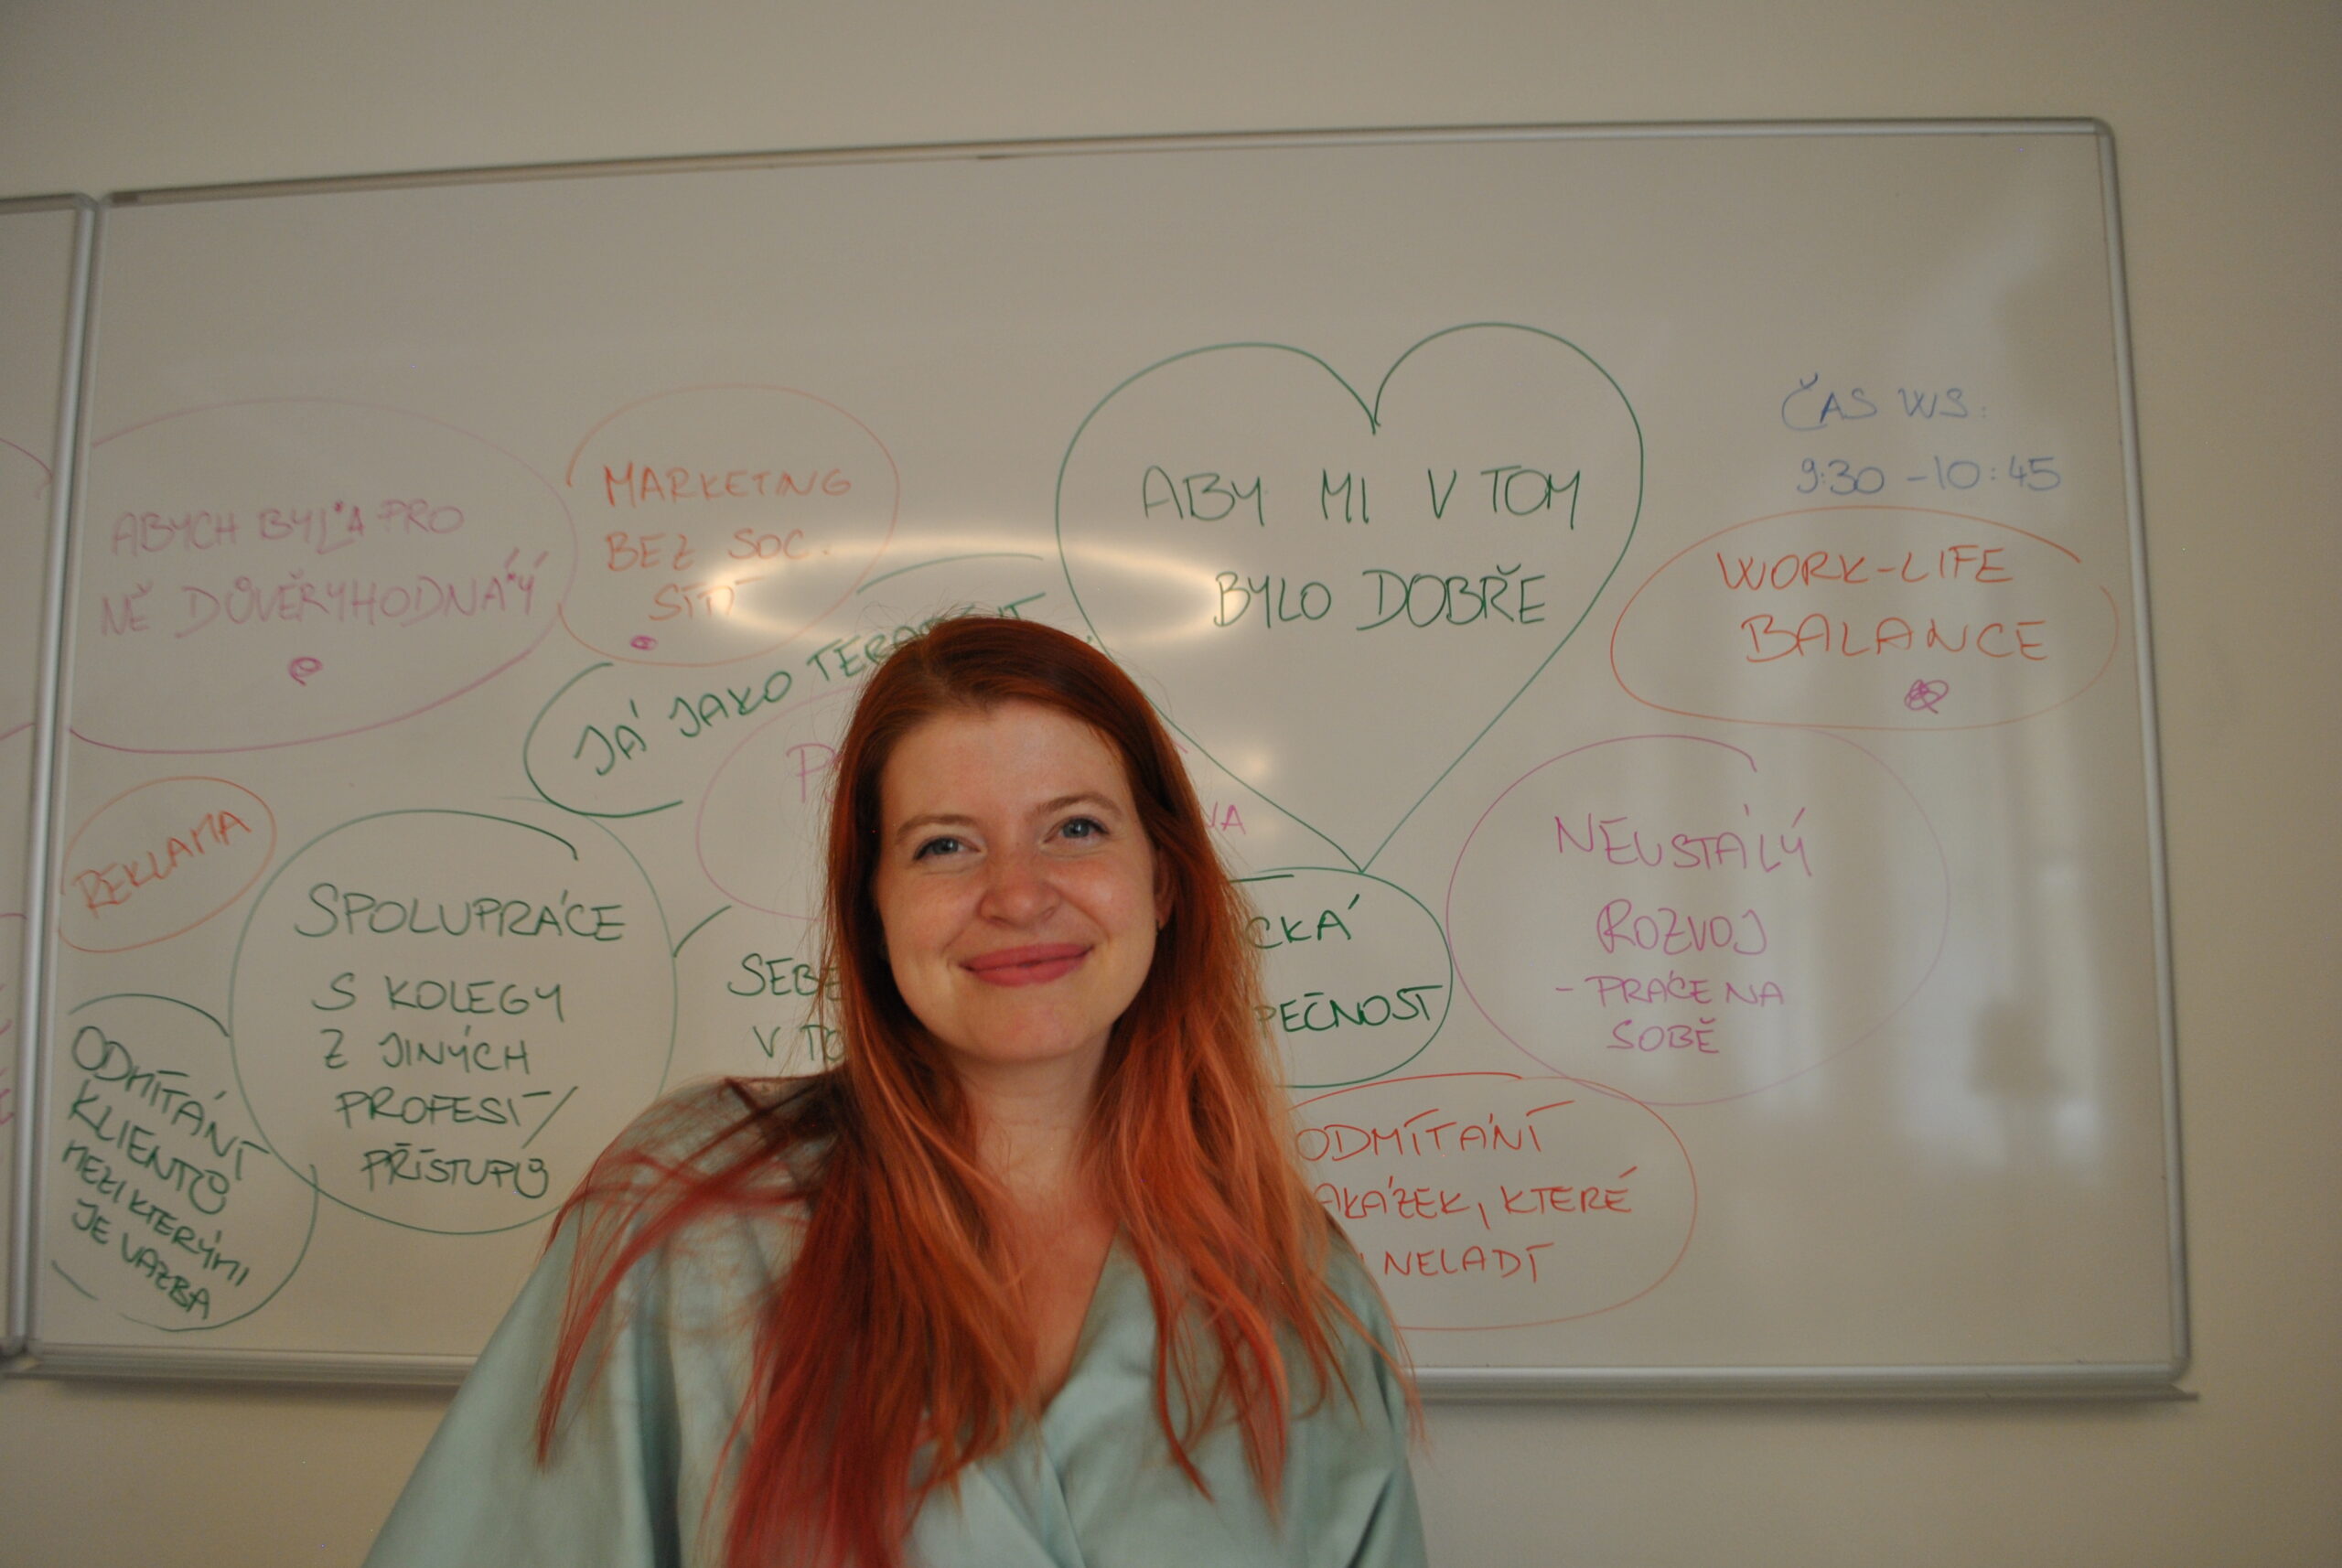 ABYCH BYL*A PRO
NĚ DŮVĚRYHODNÁ*Ý
MARKETING
BEZ SOC.
SÍTÍ
ABY MI V TOM
BYLO DOBŘE
ČAS WS:
9:30 - 10:45
WORK-LIFE
BALANCE
JÁ JAKO TERAPEUT
REKLAMA
SPOLUPRÁCE
S KOLEGY
Z JINÝCH
PROFESÍ/
PŘÍSTUPŮ
ODMÍTÁNÍ
KLIENTŮ
MEZI KTERÝMI
JE VAZBA
SEBE
V
CKÁ
PEČNOST
NEUSTÁLÝ
ROZVOJ
- PRÁCE NA
SOBĚ
ODMÍTÁNÍ
AKÁZEK, KTERÉ
NELADÍ